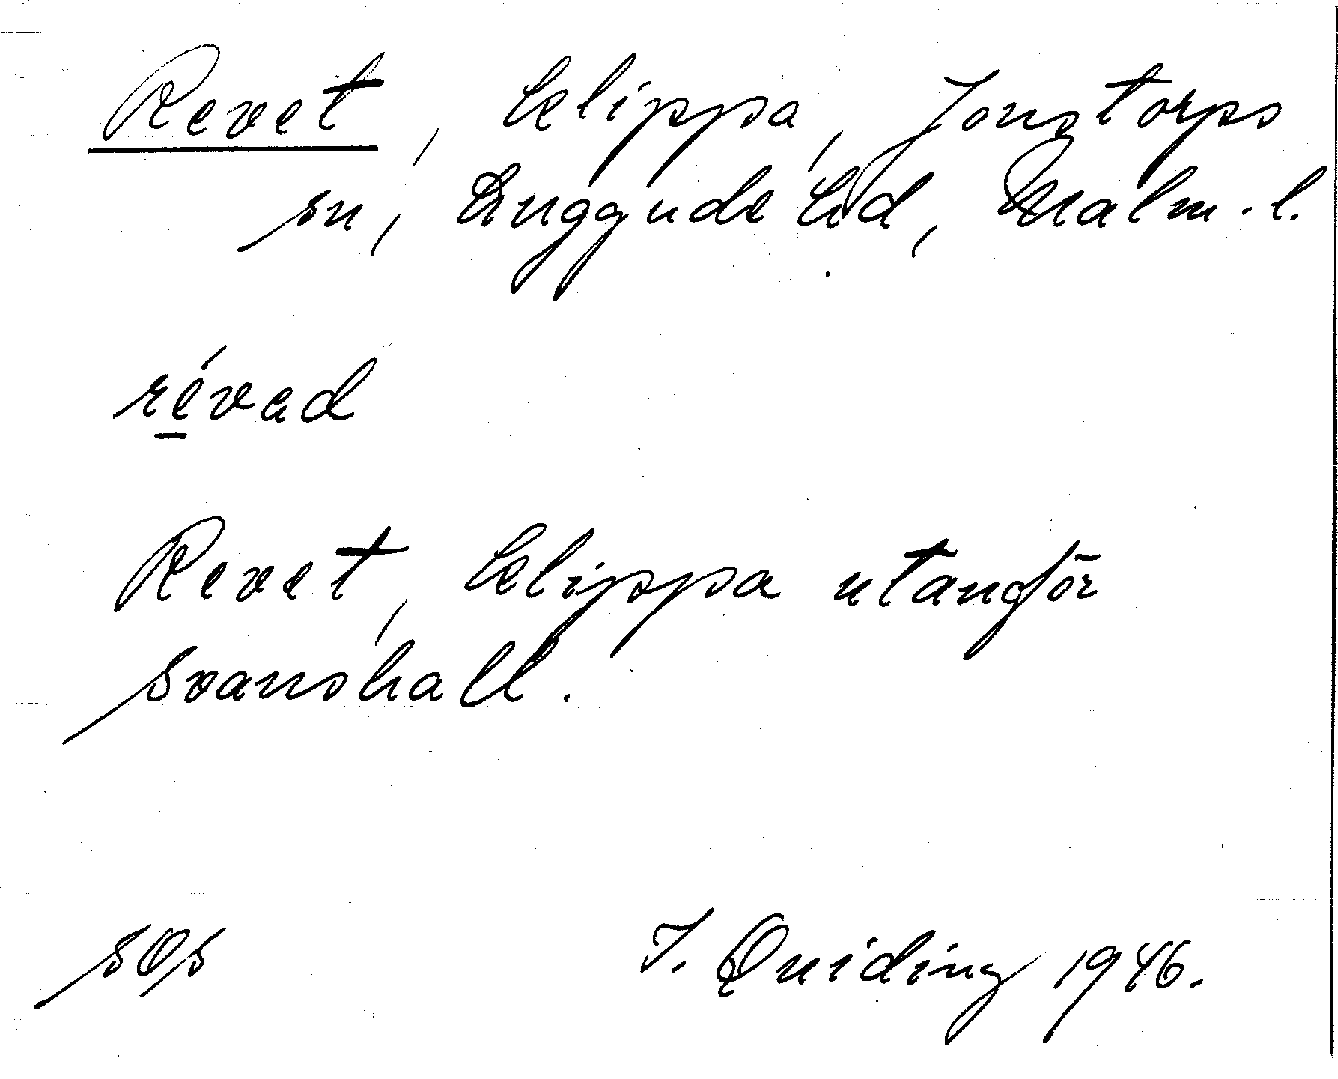 Revet, klippa, Jonstorps
sn, Luggude hd, Malm. l.
révad
Revet, klippa utanför
Svanshall.
SOS I. Quiding 1946.